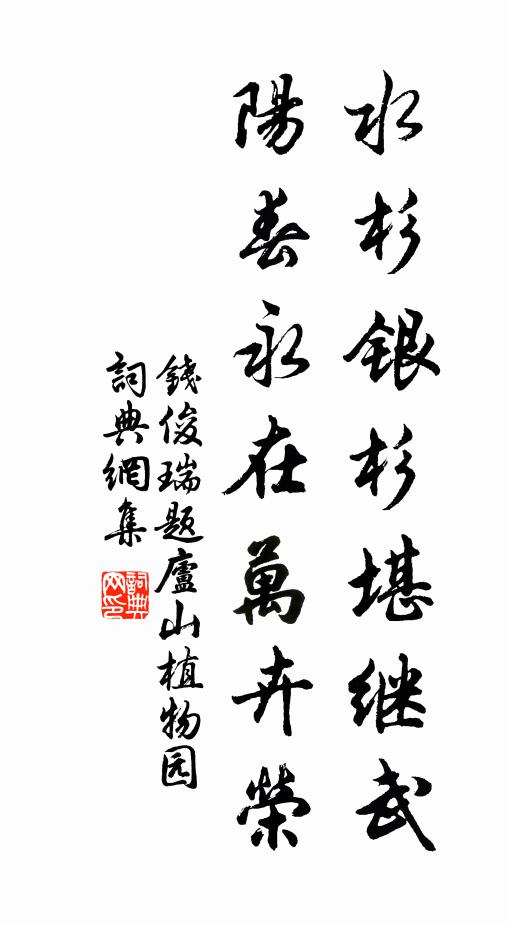 水杉銀杉堪继武
陽春永在萬卉榮
錢俊瑞题廬山植物园
詞典網集
詞典
网印